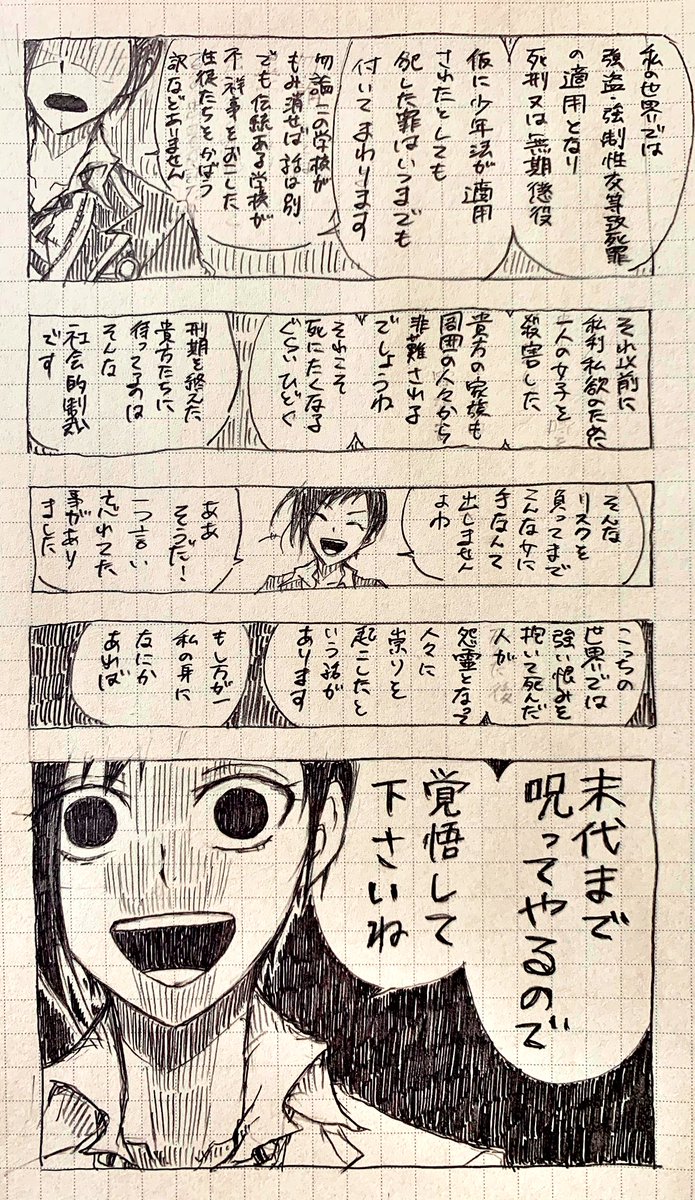 私の世界では
強盗・強制性交等致死罪
の適用となり
死刑又は無期懲役
仮に少年法が適用
されたとしても
犯した罪はいつまでも
付いてまわります
勿論この学校が
もみ消せば話は別
でも伝統ある学校が
不祥事をおこした
生徒たちをかばう
訳などありません
それ以前に
私利私欲のため
一人の女子を
殺害した
貴方の家族も
周囲の人々から
非難される
でしょうね
それこそ
死にたくなる
ぐらいひどく
刑期を終えた
貴方たちに
待ってるのは
そんな
社会的制裁
です
そんな
リスクを
負ってまで
こんな女に
手なんて
出しません
よね
ああ
そうだ!
一つ言い
忘れてた
事があり
ました
こっちの
世界では
強い恨みを
抱いて死んだ
人が後
怨霊となって
人々に
祟りを
起こしたと
いう話が
あります
もし万が一
私の身に
なにか
あれば
末代まで
呪ってやるので
覚悟して
下さいね